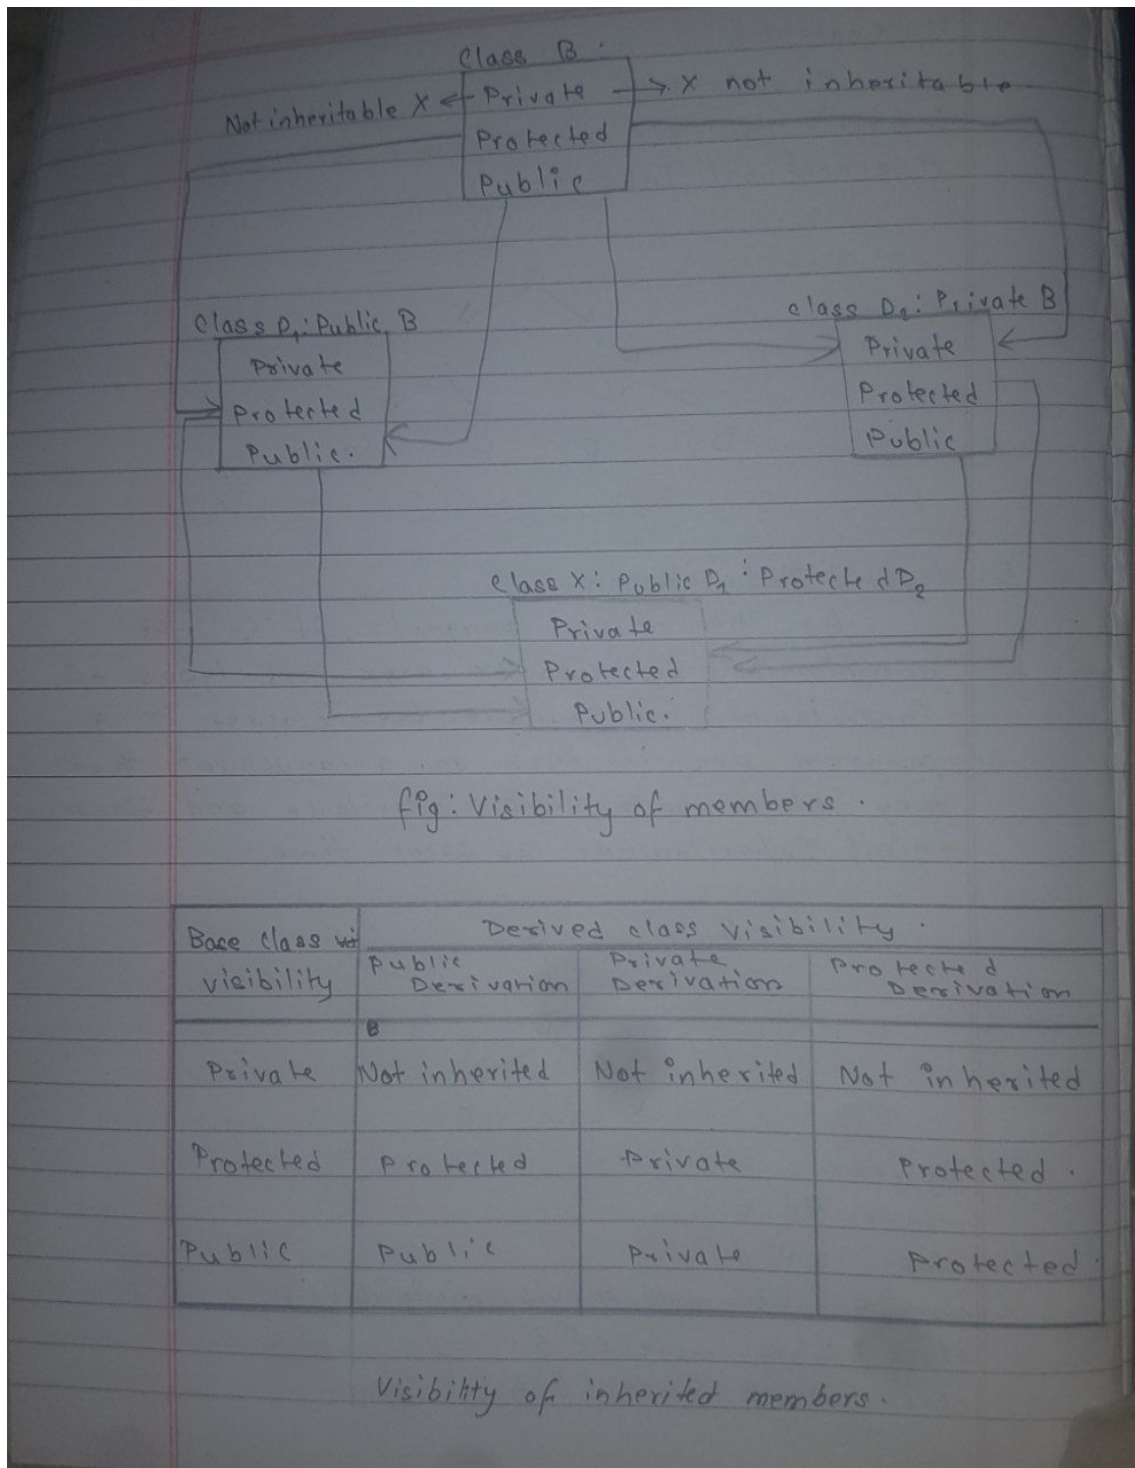 Class B.
Not inheritable X ← Private → X not inheritable
Protected
Public
Class D1: Public B
Private
Protected
Public.
class D2: Private B
Private
Protected
Public
class X: Public D1 : Protected D2
Private
Protected
Public.
fig: Visibility of members.
Base class visibility
Derived class visibility.
Public Derivation
Private Derivation
Protected Derivation
Private Not inherited Not inherited Not inherited
Protected Protected Private Protected.
Public Public Private Protected.
Visibility of inherited members.